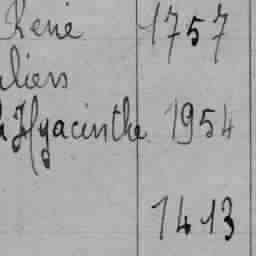 René 1757
liers
Hyacinthe 1954
1413